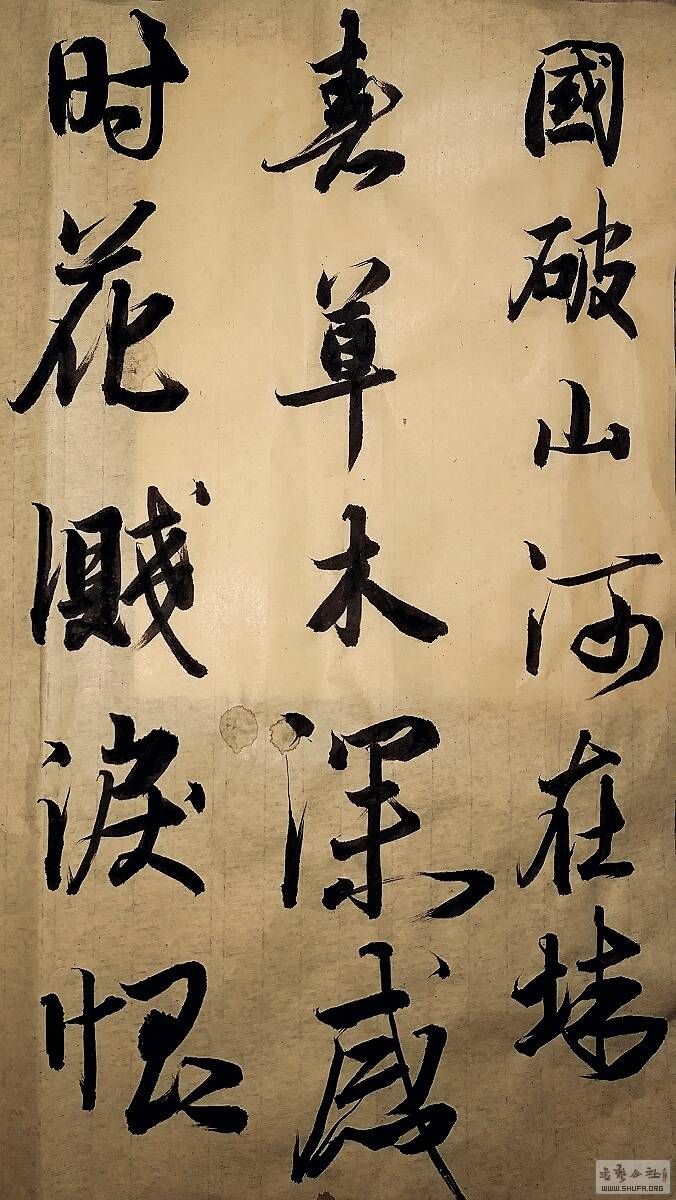 國破山河在城
春草木深感
时花濺淚恨
WWW.SHUFA.ORG